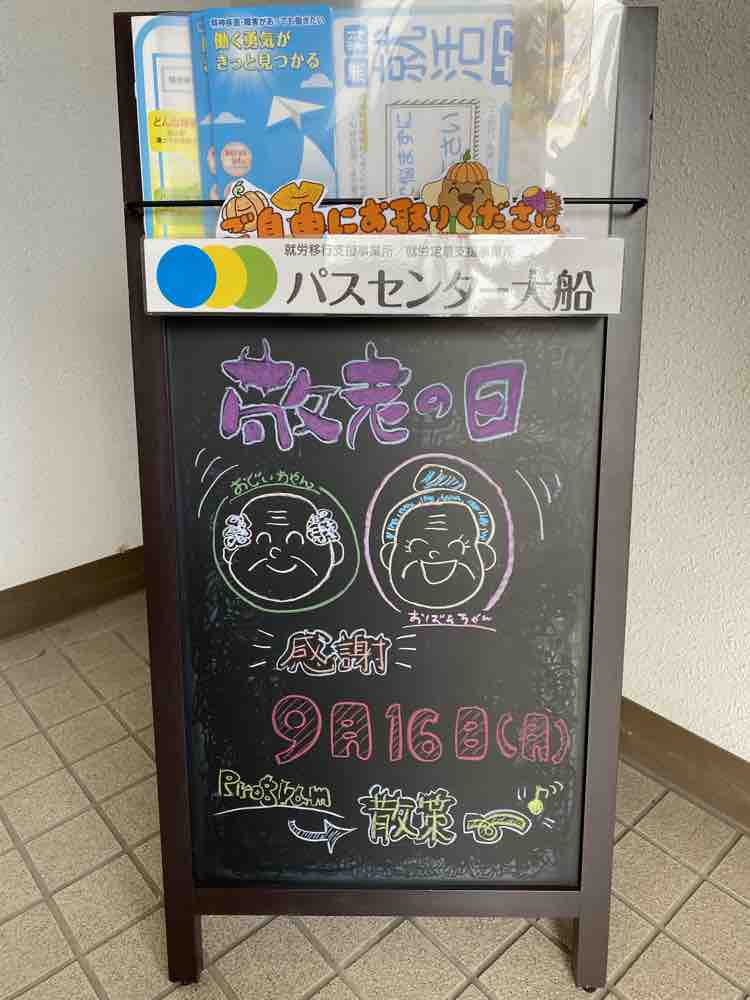 精神疾患・障害があっても働きたい
働く勇気が
きっと見つかる
就活
どんな
ご自由にお取りください!!
就労移行支援事業所／就労定着支援事業所
パスセンター大船
敬老の日
おじいちゃん
おばあちゃん
感謝
9月16日(月)
Program
散策